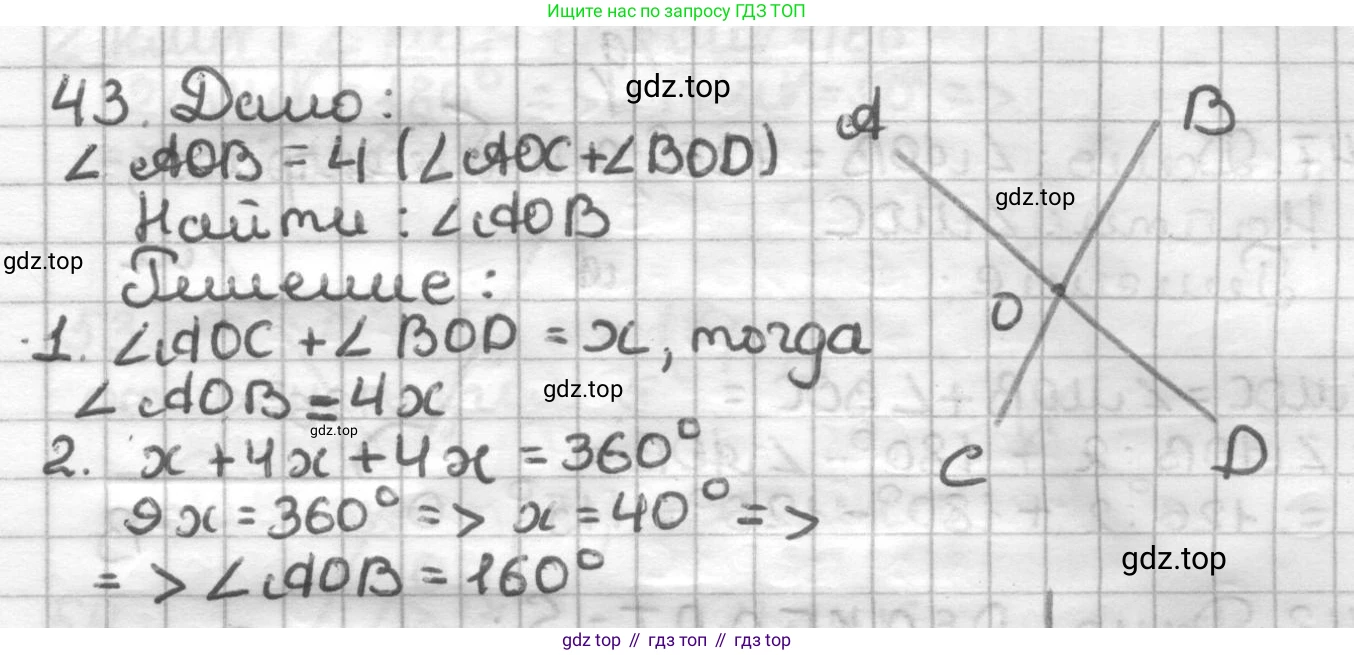 Ищите нас по запросу ГДЗ ТОП
43. Дано:
gdz.top
∠AOB = 4 (∠AOC + ∠BOD)
Найти: ∠AOB
gdz.top
Решение:
1. ∠AOC + ∠BOD = x, тогда
∠AOB = 4x
gdz.top
gdz.top
2. x + 4x + 4x = 360°
9x = 360° => x = 40° =>
=> ∠AOB = 160°
A
B
gdz.top
O
C
D
gdz.top
gdz top // гдз топ // гдз top